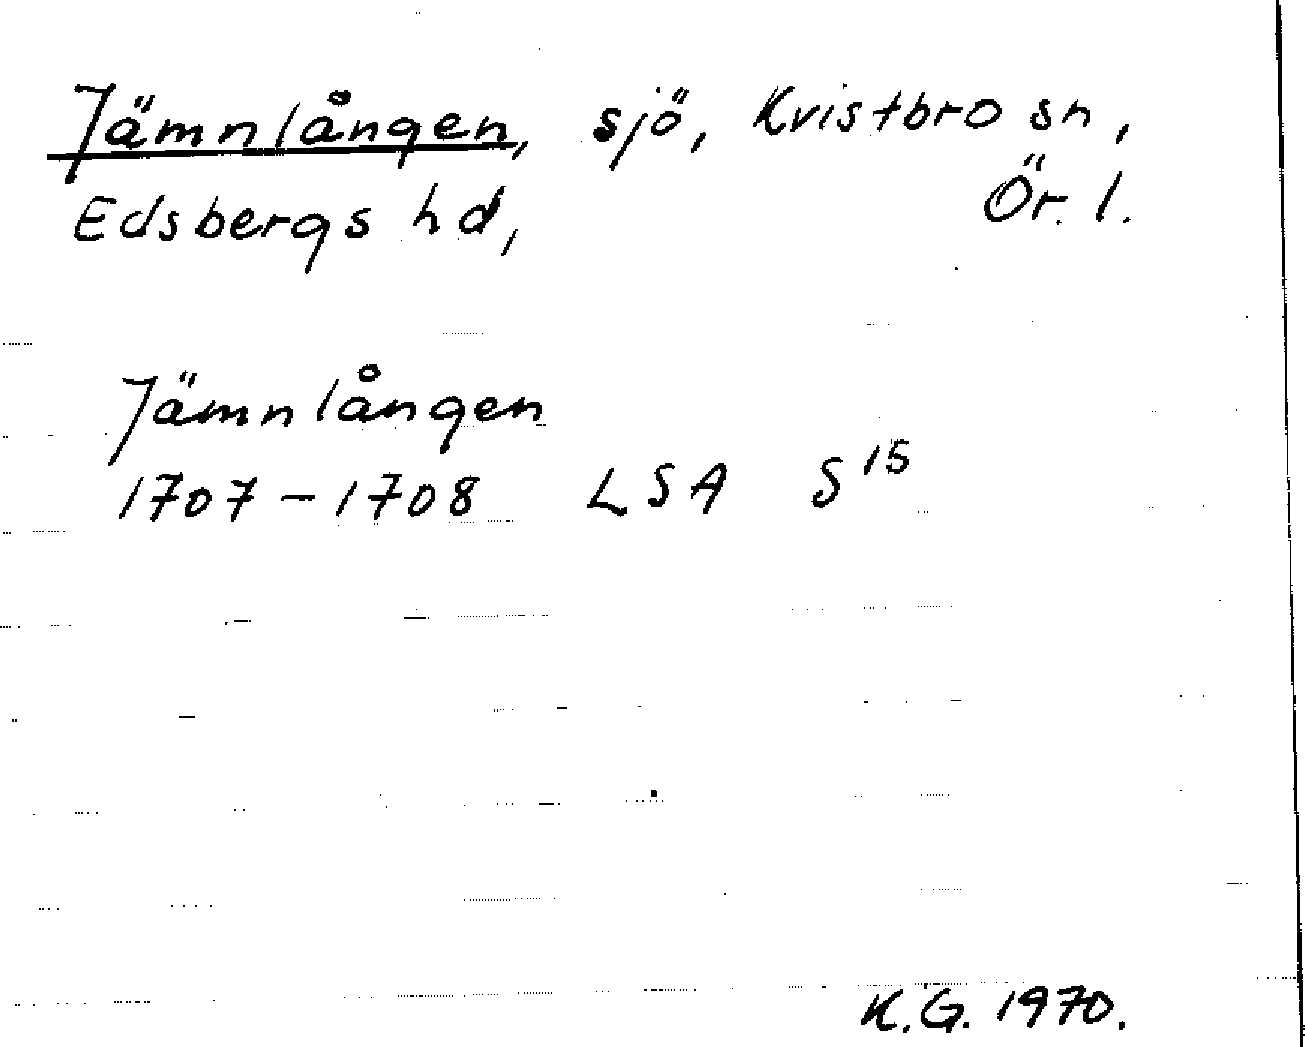 Jämnlången, sjö, Kvistbro sn,
Edsbergs hd, Ör. l.
Jämnlången
1707-1708 LSA S 15
K.G. 1970.